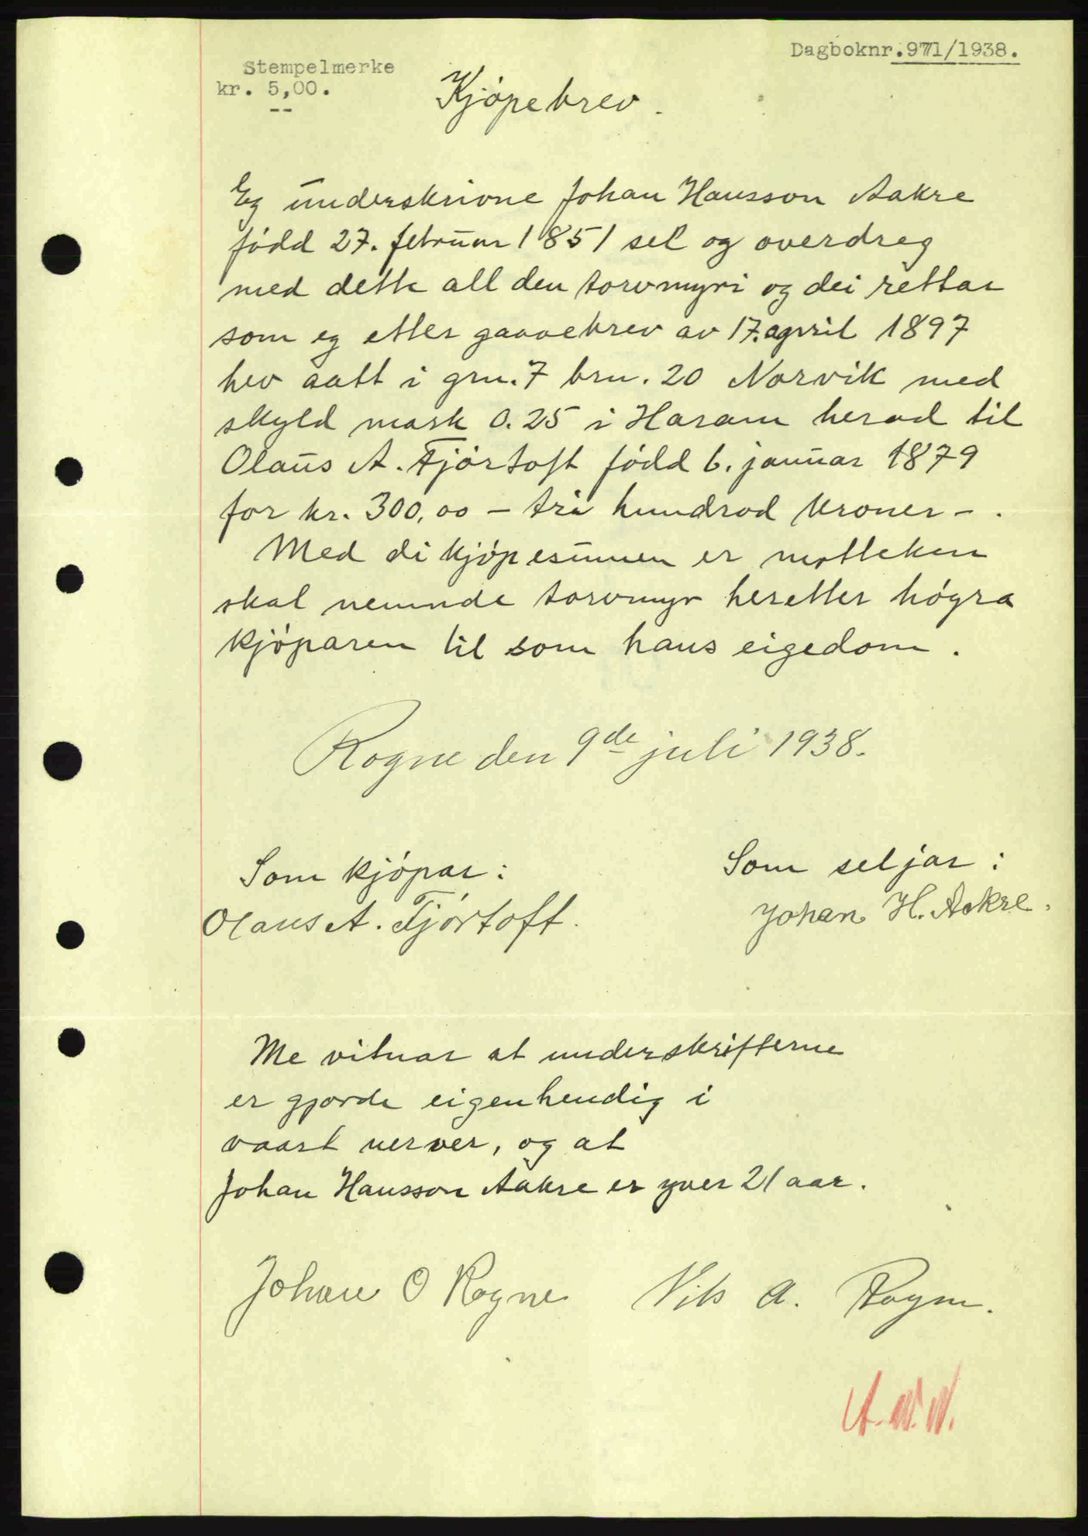 Dagboknr.971/1938.
Stempelmerke
kr. 5,00.
--
Kjöpebrev.
Eg underskrivne Johan Hansson Aakre
född 27. februar 1851 sel og overdreg
med dette all den torvmyri og dei rettar
som eg etter gaavebrev av 17. april 1897
hev aatt i grn. 7 brn. 20 Norvik med
skyld mark 0.25 i Haram herad til
Olaus A. Fjörtoft född 6. januar 1879
for kr. 300,00 – tri hundrad kroner –.
Med di kjöpesumen er motteken
skal nemnde torvmyr heretter högra
kjöparen til som hans eigedom.
Rogne den 9de juli 1938.
Som kjöpar:
Olaus A. Fjörtoft.
Som seljar:
Johan H. Aakre.
Me vitnar at underskrifterne
er gjorde eigenhendig i
vaart nerver, og at
Johan Hansson Aakre er yver 21 aar.
Johan O Rogne
Nils A. Rogne.